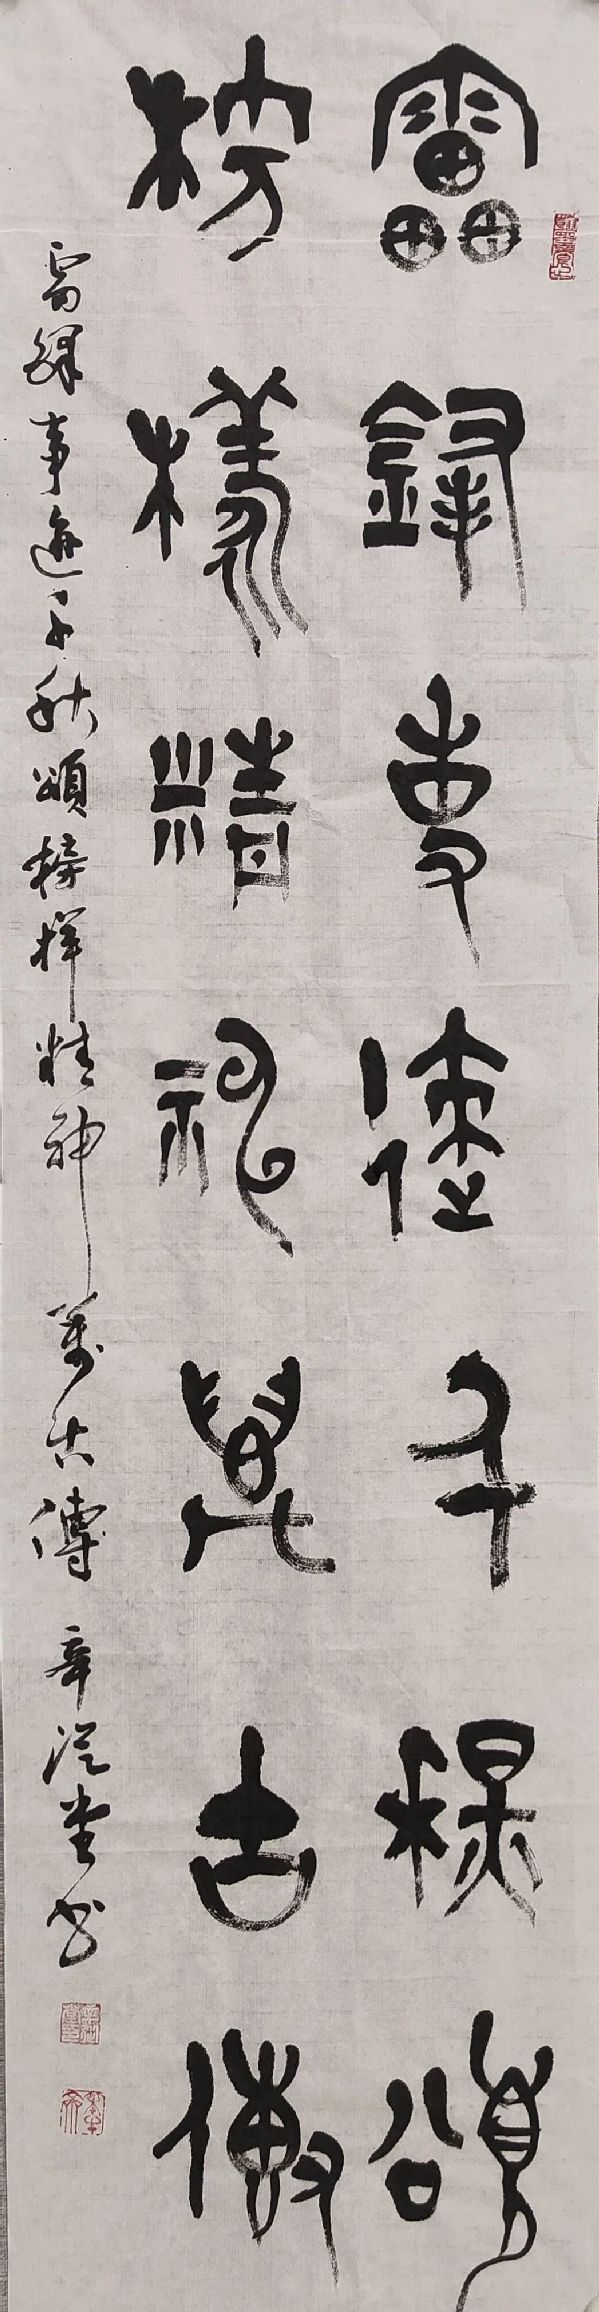 雷鋒事迹千秋頌
榜樣精神萬古傳
雷鋒事迹千秋頌榜样精神萬古傳 辛從堂书